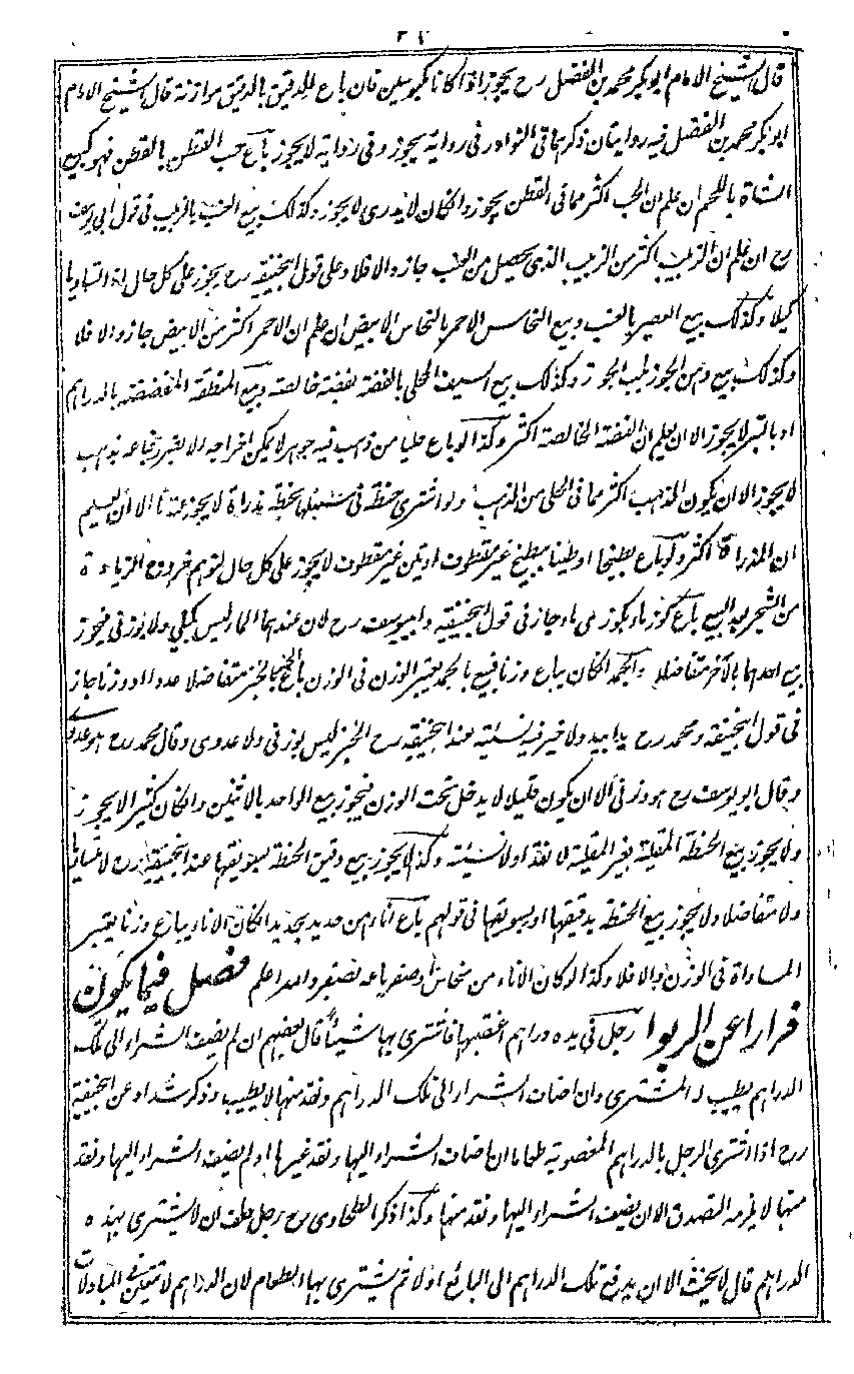 قال الشيخ الامام ابو بكر محمد بن الفضل رح يجوز اذا كانا مكبوسين فان باع الدقيق بالدقيق موازنة قال الشيخ الامام
ابو بكر محمد بن الفضل فيه روايتان ذكرهما في النوادر في رواية يجوز وفي رواية لا يجوز باع حب القطن بالقطن فهو كبيع
الشاة باللحم ان علم ان الحب اكثر مما في القطن يجوز وان كان لا يدرى لا يجوز وكذلك بيع العنب بالزبيب في قول ابي يوسف
رح ان علم ان الزبيب اكثر من الزبيب الذي يحصل من العنب جاز والا فلا وعلى قول ابيحنيفة رح يجوز على كل حال اذا تساويا
كيلا وكذلك بيع العصير بالعنب وبيع النحاس الاحمر بالنحاس الابيض ان علم ان الاحمر اكثر من الابيض جاز والا فلا
وكذلك بيع دهن الجوز بلب الجوز وكذلك بيع السيف المحلى بالفضة بفضة خالصة وبيع المنطقة المفضضة بالدراهم
او بالتبر لا يجوز الا ان يعلم ان الفضة الخالصة اكثر وكذا لو باع حليا من ذهب فيه جوهر لا يمكن اخراجه الا بضرر باعه بذهب
لا يجوز الا ان يكون الذهب اكثر مما في الحلي من الذهب ولو اشترى حنطة في سنبلها بحنطة مذراة لا يجوز عندنا الا ان يعلم
ان المذراة اكثر ولو باع بطيخا او طينا ببطيخ غير مقطوف او تين غير مقطوف لا يجوز على كل حال لتوهم خروج الزيادة
من الشجر بعد البيع باع كوز ماء بكوزي ماء جاز في قول ابيحنيفة وابيوسف رح لان عندهما الماء ليس بكيلي ولا وزني فيجوز
بيع احدهما بالآخر متفاضلا والجمد ان كان يباع وزنا فبيع بالجمد يعتبر الوزن في الوزن باع الخبز بالخبز متفاضلا عددا او وزنا جاز
في قول ابيحنيفة ومحمد رح يدا بيد ولا خير فيه نسيئة عند ابيحنيفة رح الخبز ليس بوزني ولا عددي وقال محمد رح هو عددي
وقال ابو يوسف رح هو وزني الا ان يكون قليلا لا يدخل تحت الوزن فيجوز بيع الواحد بالاثنين وان كان كثيرا لا يجوز
ولا يجوز بيع الحنطة المقلية بغير المقلية لا نقدا ولا نسيئة وكذا لا يجوز بيع دقيق الحنطة بسويقها عند ابيحنيفة رح لا متساويا
ولا متفاضلا ولا يجوز بيع الحنطة بدقيقها او بسويقها في قولهم باع اناء من حديد بحديد ان كان الاناء يباع وزنا يعتبر
المساواة في الوزن والا فلا وكذا لو كان الاناء من نحاس او صفر باعه بصفر والله اعلم فصل فيما يكون
فرارا عن الربوا رجل في يده دراهم اغتصبها فاشترى بها شيئا قال بعضهم ان لم يضف الشراء الى تلك
الدراهم يطيب له المشترى وان اضاف الشراء الى تلك الدراهم ونقد منها لا يطيب وذكر شداد عن ابيحنيفة
رح اذا اشترى الرجل بالدراهم المغصوبة طعاما ان اضاف الشراء اليها ونقد غيرها او لم يضف الشراء اليها ونقد
منها لا يلزمه التصدق الا ان يضيف الشراء اليها ونقد منها وكذا ذكر الطحاوي رح رجل حلف ان لا يشتري بهذه
الدراهم قال لا يحنث الا ان يدفع تلك الدراهم الى البائع اولا ثم يشتري بها الطعام لان الدراهم لا تتعين في المبادلات